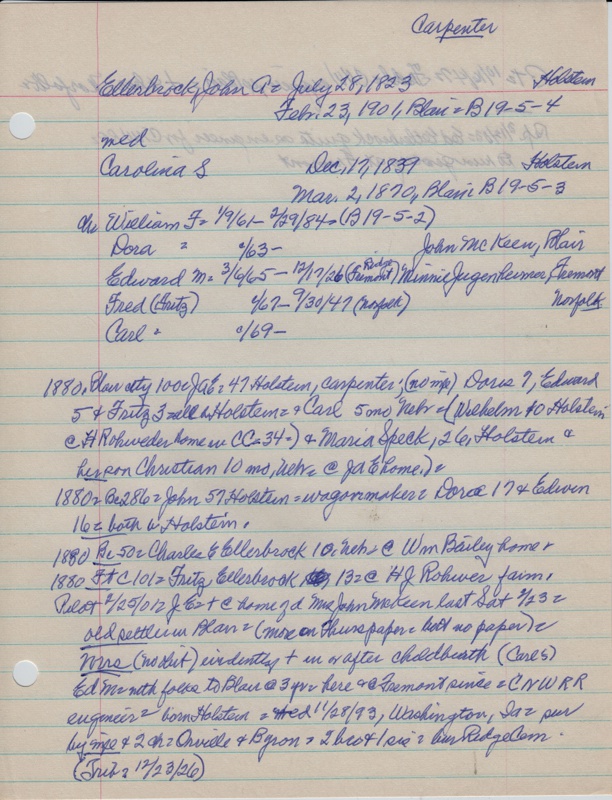 Carpenter
Ellerbrock, John A = July 28, 1823 Holstein
Feb. 23, 1901, Blair = B 19-5-4
med
Carolina S Dec, 17, 1839 Holstein
Mar. 2, 1870, Blair B 19-5-3
ch William F = 1/9/61 - 2/29/84 = (B 19-5-2)
Dora = 0/63 - John McKeen, Blair
Edward M = 3/6/65 - 12/17/26 (Ridge Fremont) Minnie Jugenheimer, Fremont
Fred (Fritz) 4/67 - 9/30/47 (Norfolk) Norfolk
Carl = 0/69 -
1880, Blair city 100 = JAE = 47 Holstein, carpenter; (no mpe) Doris 7, Edward
5 & Fritz 3 = all b Holstein = & Carl 5 mo Nebr = (Wilhelm 10 Holstein
@ H Rohweder home in CC = 34 =) & Maria Speck, 26, Holstein &
her son Christian 10 mo, Nebr = @ JAE home.) =
1880 = Bl 286 = John 57 Holstein = wagonmaker = Dora 17 & Edwin
16 = both b Holstein.
1880 Bl 50 = Charles E Ellerbrock 10, Neb = @ Wm Bailey home &
1880 Ft C 101 = Fritz Ellerbrock 13 = @ H J Rohwer farm.
Pilot 2/25/01 = J E = + @ home of d Mrs John McKeen last Sat 2/23 =
old settler in Blair = (more on Thurs paper = but no paper) =
Mrs (no obit) evidently + in or after childbirth (Carl's)
Ed M = with folks to Blair @ 3 yr = here & @ Fremont since = CNWRR
engineer = born Holstein = med 11/28/93, Washington, Ia = sur
by mpe & 2 ch = Orville & Byron = 2 bro & 1 sis = bur Ridge Cem.
(Trib = 12/23/26)